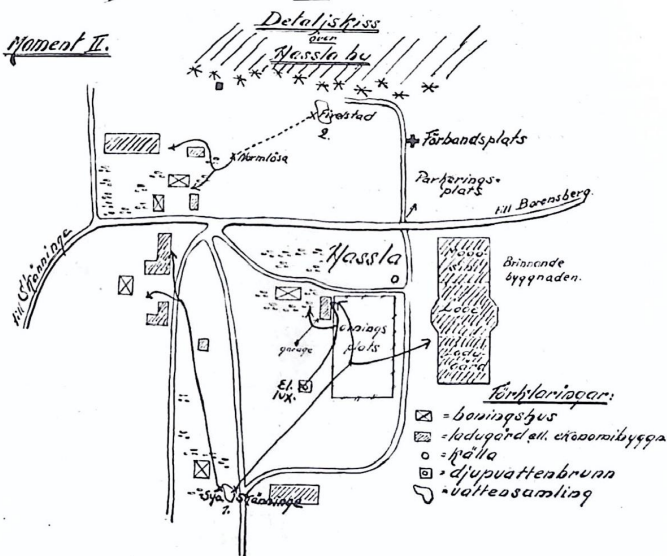 Moment II.
Detaljskiss
över
Hassla by
Fivelstad
2.
Normlösa
Förbandsplats
Parkerings-
plats
till Borensberg.
till Skänninge
Hassla
Brinnande
byggnaden.
Loge
Ladu-
gård
ornings
plats
garage
El.
lux.
Förklaringar:
= boningshus
= ladugård ell. ekonomibyggn.
= källa
= djupvattenbrunn
= vattensamling
Sya
Skänninge
1.